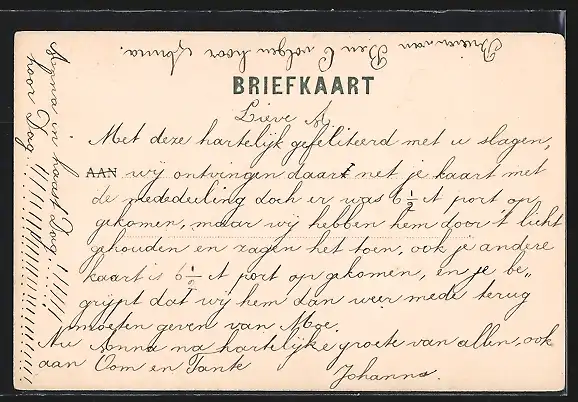 Brieven van Ben C volgen hoor Anna.
BRIEFKAART
Lieve A
Met deze hartelijk gefeliteerd met u slagen,
AAN wij ontvingen daar net je kaart met
de mededeeling doch er was 6 1/2 ct port op
gekomen, maar wij hebben hem door 't licht
gehouden en zagen het toen, ook je andere
kaart is 6 1/2 ct port op gekomen, en je be„
grijpt dat wij hem dan weer mede terug
moeten geven van Moe.
Nu Anna na hartelijke groete van allen, ook
aan Oom en Tante
Johanna.
in haast Dag!!!!!!
hoor Dag!!!!!!!!!!!!!!!!!!!!